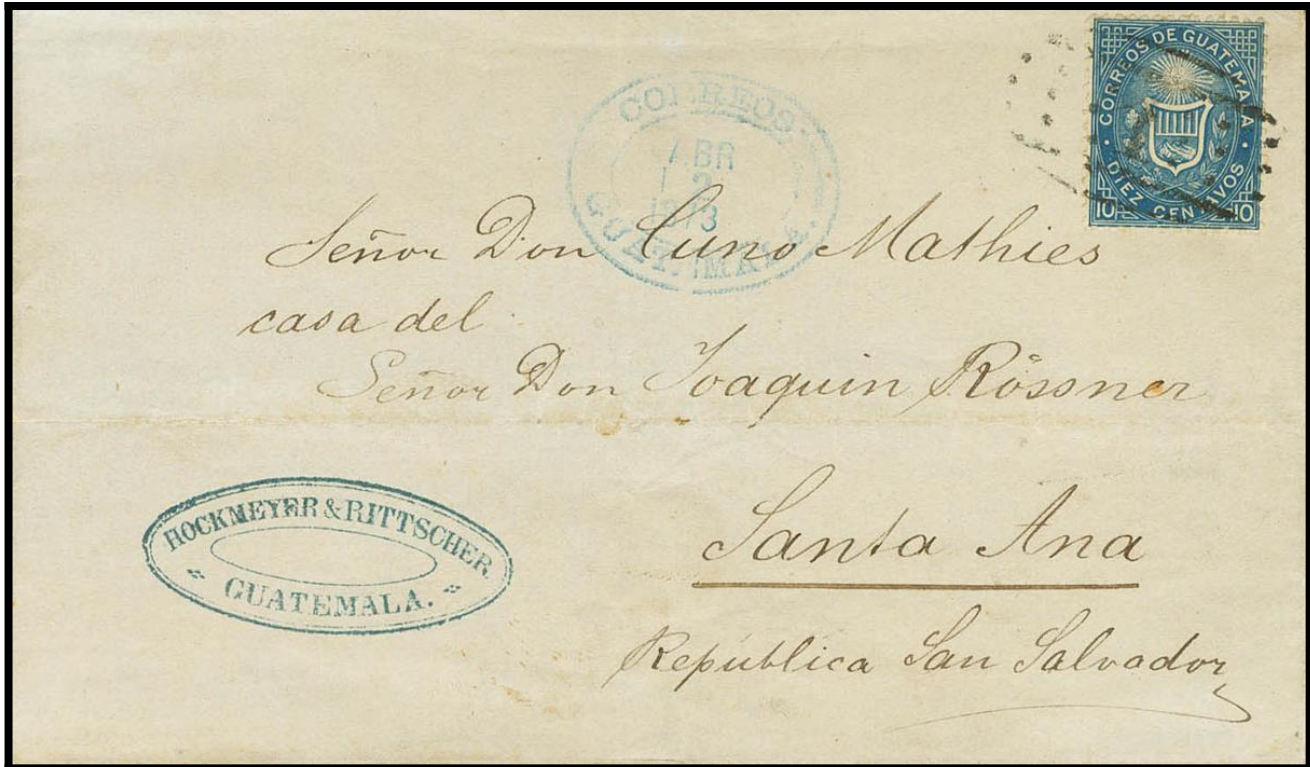 CORREOS DE GUATEMALA
DIEZ CENTAVOS
10 10
CORREOS
ABR
12
1873
GUATEMALA.
Señor Don Cuno Mathies
casa del
Señor Don Joaquin Rössner
Santa Ana
República San Salvador
HOCKMEYER & RITTSCHER
GUATEMALA.